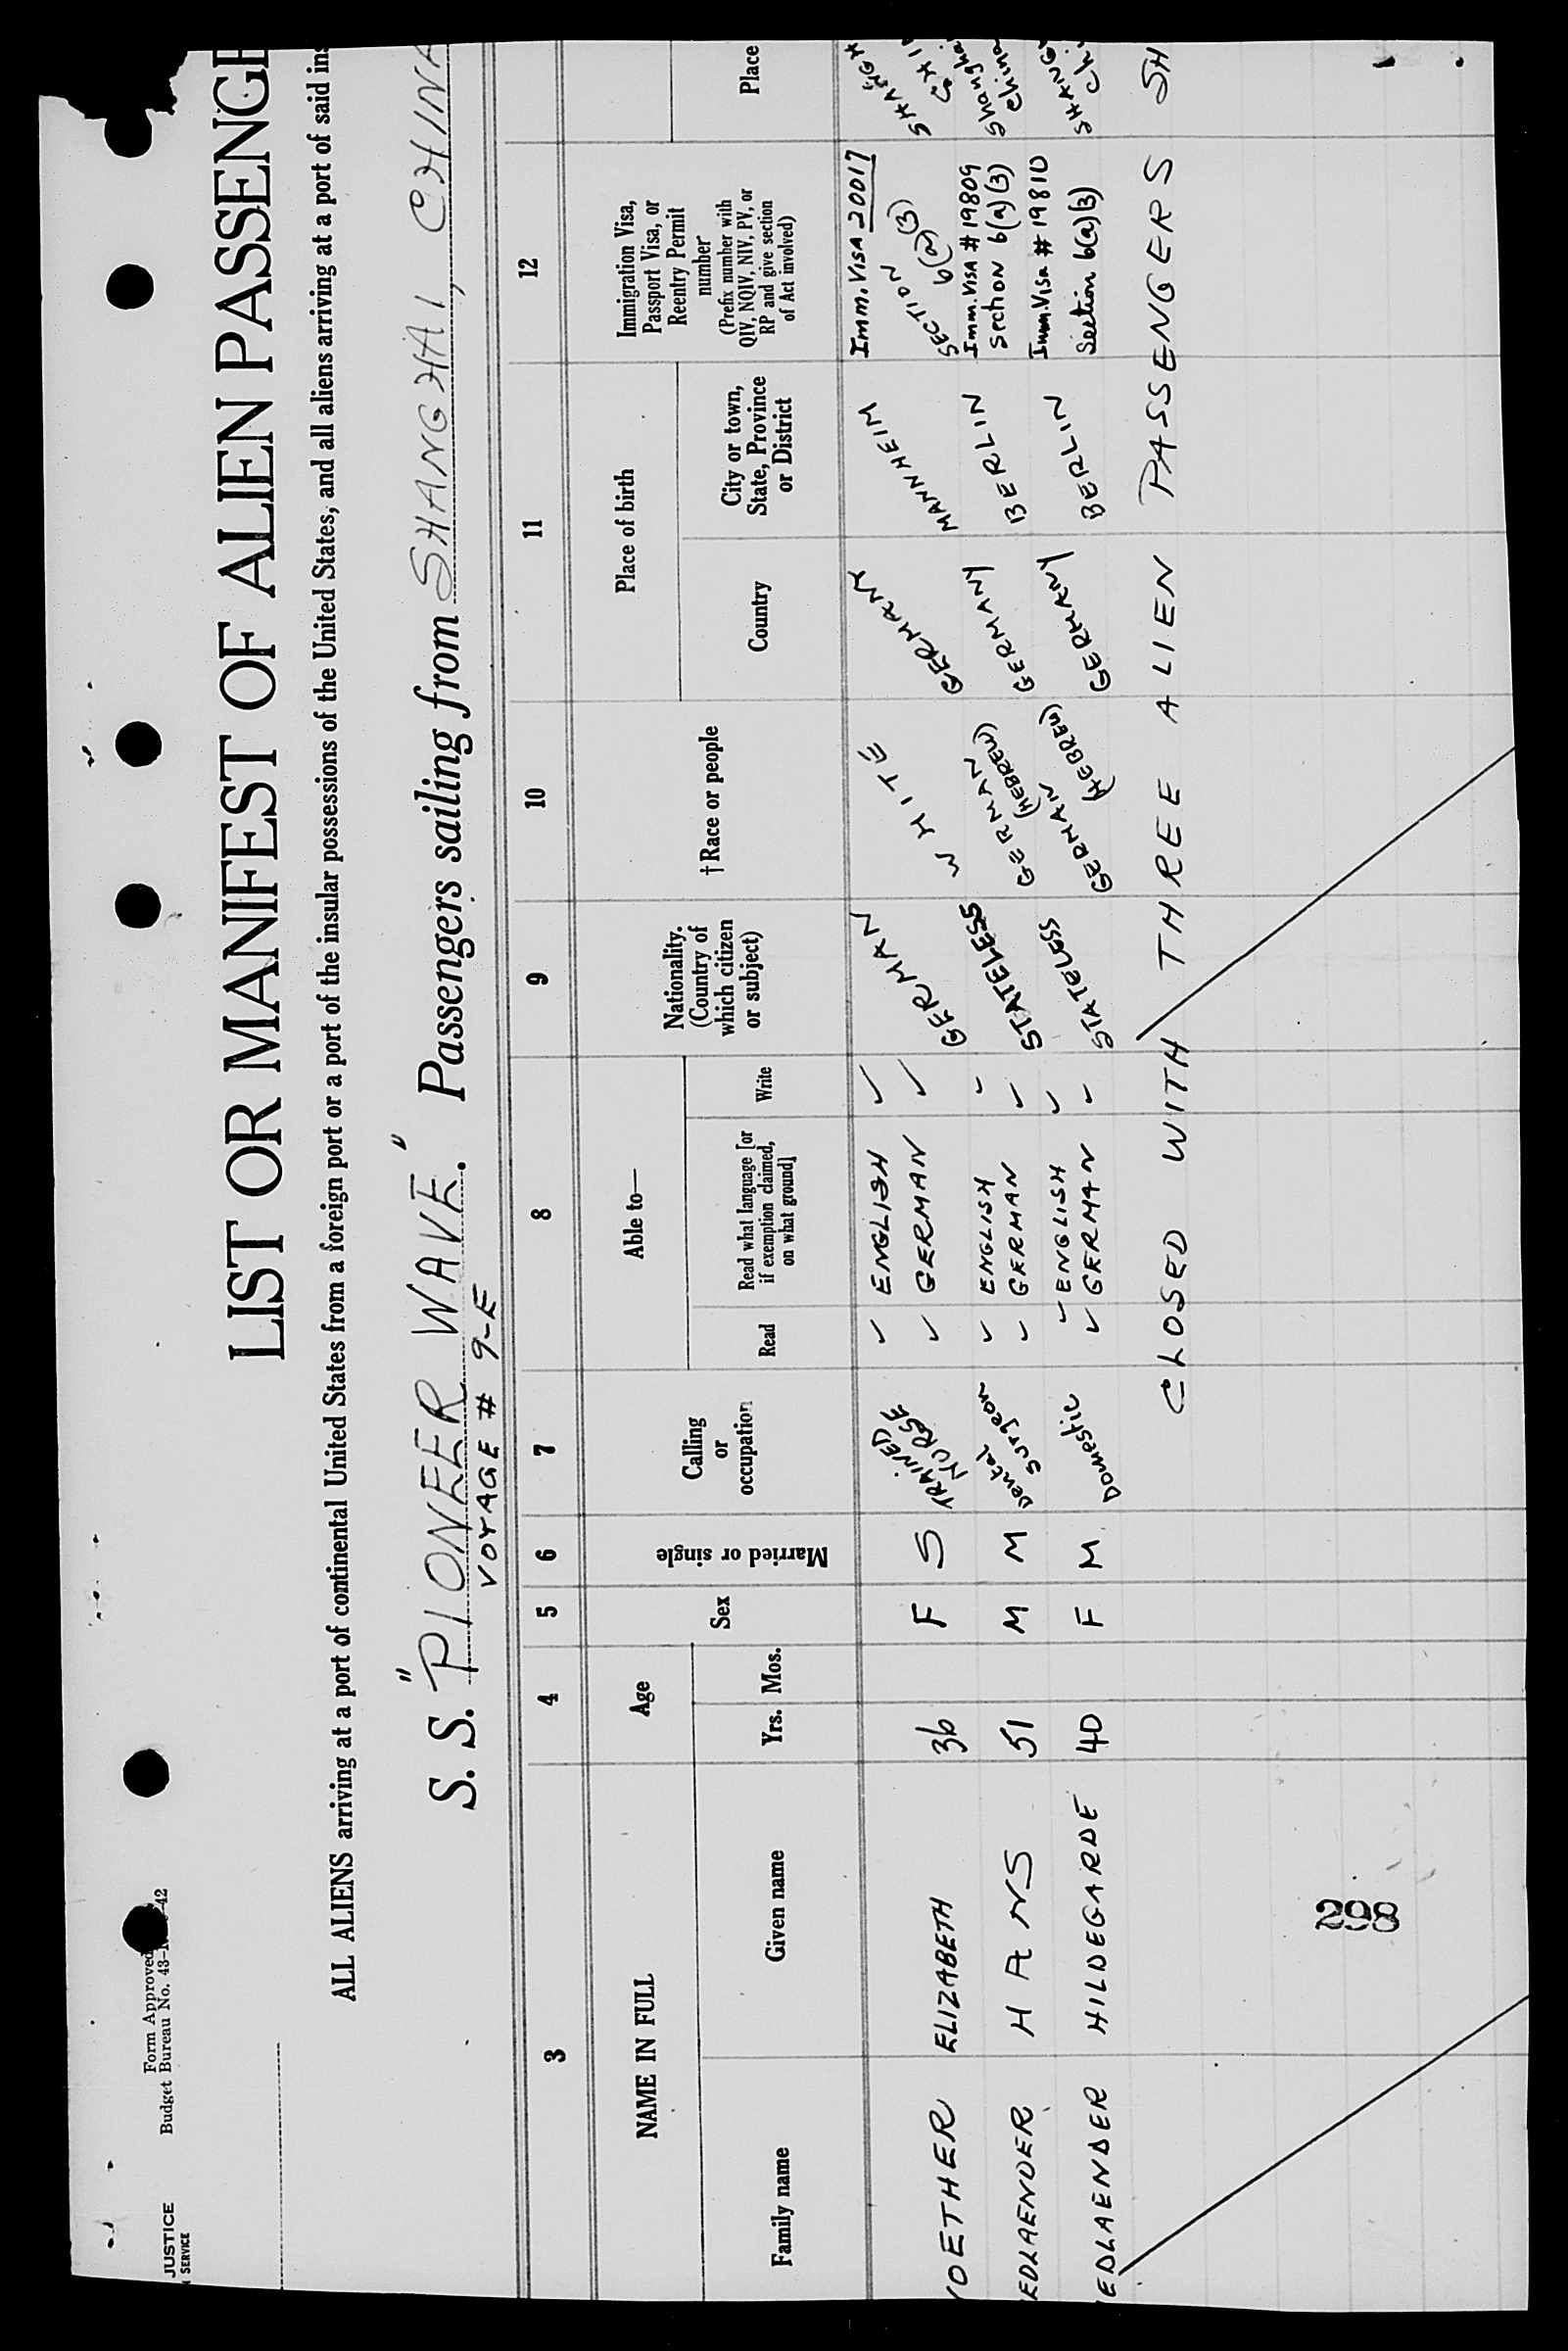 JUSTICE
SERVICE
Form Approved
Budget Bureau No. 43- 42
LIST OR MANIFEST OF ALIEN PASSENGE
ALL ALIENS arriving at a port of continental United States from a foreign port or a port of the insular possessions of the United States, and all aliens arriving at a port of said ins
S. S. "PIONEER WAVE." Passengers sailing from SHANGHAI, CHINA
VOYAGE # 9-E
3 4 5 6 7 8 9 10 11 12
NAME IN FULL
Family name
Given name
Age
Yrs. Mos.
Sex
Married or single
Calling
or
occupation
Able to—
Read
Read what language [or
if exemption claimed,
on what ground]
Write
Nationality.
(Country of
which citizen
or subject)
†Race or people
Place of birth
Country
City or town,
State, Province
or District
Immigration Visa,
Passport Visa, or
Reentry Permit
number
(Prefix number with
QIV, NQIV, NIV, PV, or
RP and give section
of Act involved)
Place
OETHER ELIZABETH 36 F S TRAINED NURSE ✓ ENGLISH ✓ GERMAN WHITE GERMANY MANNHEIM Imm. Visa 20017
✓ GERMAN ✓ SECTION 6(a)(3)
EDLAENDER HANS 51 M M Dental Surgeon ✓ ENGLISH ✓ STATELESS GERMAN (HEBREW) GERMANY BERLIN Imm. Visa # 19809 Shanghai
✓ GERMAN ✓ Section 6(a)(3) China
EDLAENDER HILDEGARDE 40 F M Domestic ✓ ENGLISH ✓ STATELESS GERMAN (HEBREW) GERMANY BERLIN Imm. Visa # 19810
✓ GERMAN ✓ Section 6(a)(3)
CLOSED WITH THREE ALIEN PASSENGERS SH
298